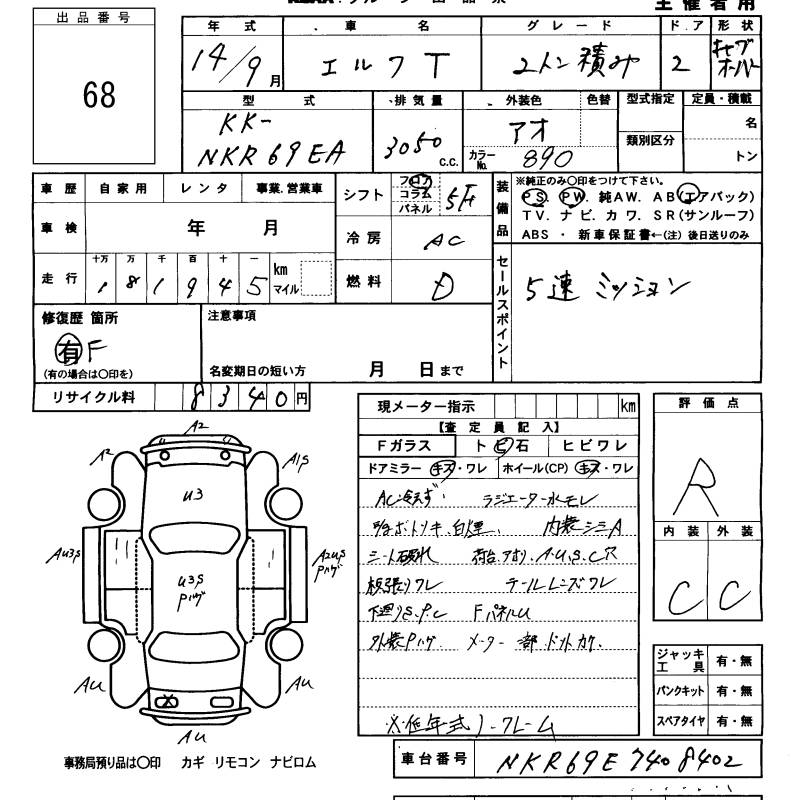 主催者用
出品番号
68
年式 車名 グレード ドア 形状
14/9月 エルフT 2トン積み 2 キャブオーバー
型式 排気量 外装色 色替 型式指定 定員・積載
KK-
NKR69EA 3050 c.c. アオ 類別区分 名
カラーNo. 890 トン
車歴 自家用 レンタ 事業.営業車
シフト フロア コラム パネル 5F
装備品 ※純正のみ○印をつけて下さい。
PS. PW. 純AW. AB(エアバック)
TV. ナビ. カワ. SR(サンルーフ)
ABS ・ 新車保証書←(注) 後日送りのみ
車検 年 月
冷房 AC
走行 十万 万 千 百 十 一
1 8 1 9 4 5 km マイル
燃料 D
セールスポイント 5速 ミッション
修復歴 箇所 注意事項
有 F
(有の場合は○印を) 名変期日の短い方 月 日まで
リサイクル料 8 3 4 0 円
現メーター指示 km
評価点
【査定員記入】
Fガラス ト ビ 石 ヒビワレ
ドアミラー キズ・ワレ ホイール(CP) キズ・ワレ
AC冷えず ラジエーター水モレ
白煙. 内装シミA
シート破れ 荷台.アオリ.A.U.S.C穴
板張りワレ テールレンズワレ
下廻りS.P.C FパネルU
外装Pハゲ メーター部ドットカケ.
※低年式 フレーム
R
内装 外装
C C
A2
A2 A1S
U3
AU3S A2US Pハゲ
U3S
Pハゲ
AU AU
AU
ジャッキ工具 有・無
パンクキット 有・無
スペアタイヤ 有・無
事務局預り品は○印 カギ リモコン ナビロム
車台番号 NKR69E 7408402